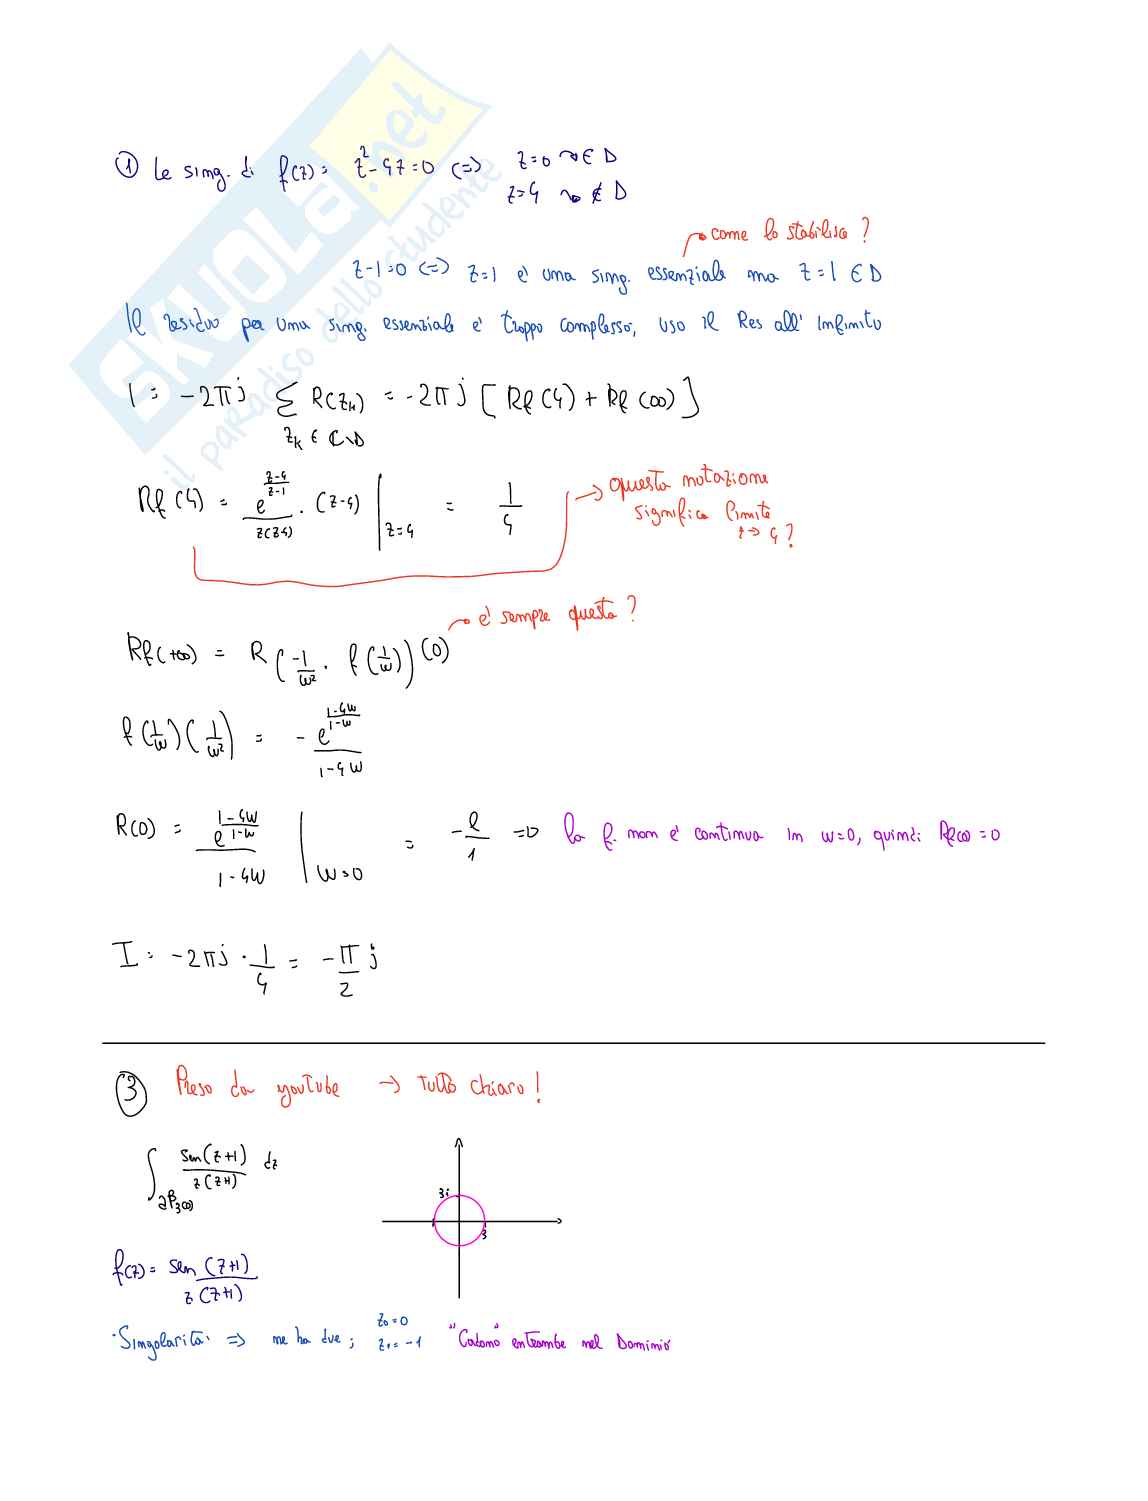 SKUOLA.net
il paradiso dello studente
① Le sing. di f(z) = z² - 4z = 0 <=> z=0 ↝ ∈ D
z=4 ↝ ∉ D
come lo stabilisco ?
z-1=0 <=> z=1 e' una sing. essenziale ma z=1 ∈ D
Il residuo per una sing. essenziale e' troppo complesso, uso il Res all' Infinito
I = -2πj ∑ R(zₖ) = -2πj [ Rf(4) + Rf(∞) ]
zₖ ∈ ℂ\D
Rf(4) = e^((z-4)/(z-1)) / z(z-4) · (z-4) |z=4 = 1/4
questa notazione
significa limite
z→4 ?
e' sempre questa ?
Rf(+∞) = R(-1/w² · f(1/w))(0)
f(1/w)(1/w²) = - e^((1-4w)/(1-w)) / 1-4w
R(0) = e^((1-4w)/(1-w)) / 1-4w |w=0 = -e/1 => la f. non e' continua in w=0, quindi Rf(∞)=0
I = -2πj · 1/4 = -π/2 j
③ Preso da youtube → Tutto chiaro !
∫∂B₃(0) sen(z+1) / z(z+1) dz
3i
3
f(z) = sen(z+1) / z(z+1)
· Singolarita' => ne ha due ; z₀=0
z₁=-1 "Cadono" entrambe nel Dominio